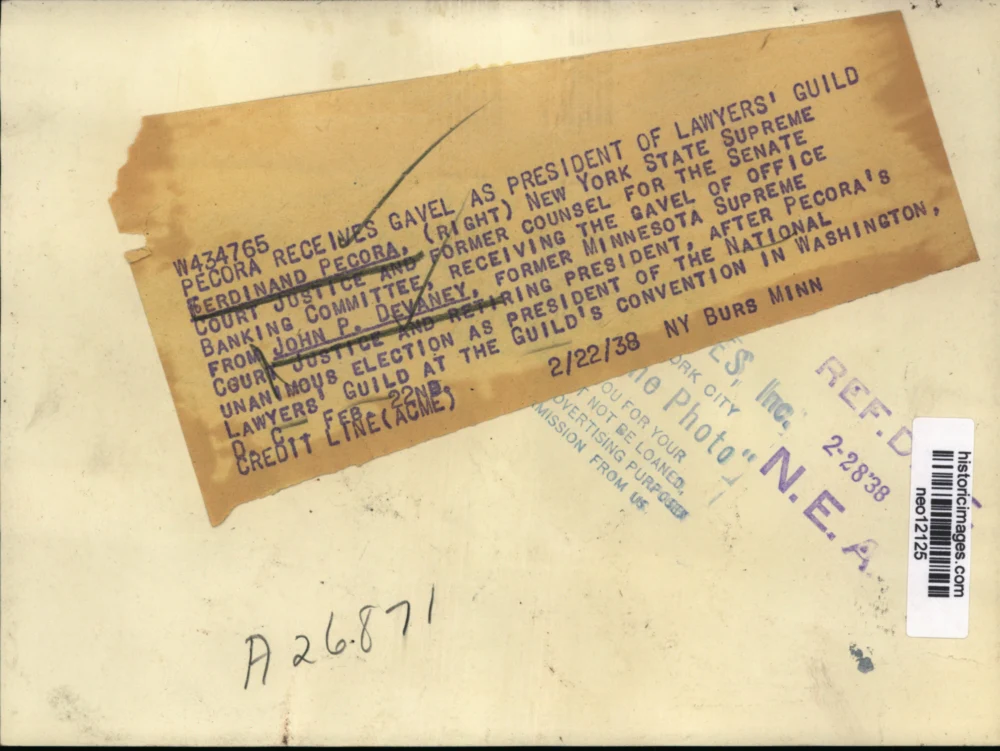 W434765
PECORA RECEIVES GAVEL AS PRESIDENT OF LAWYERS' GUILD
FERDINAND PECORA, (RIGHT) NEW YORK STATE SUPREME
COURT JUSTICE AND FORMER COUNSEL FOR THE SENATE
BANKING COMMITTEE, RECEIVING THE GAVEL OF OFFICE
FROM JOHN P. DEVANEY, FORMER MINNESOTA SUPREME
COURT JUSTICE AND RETIRING PRESIDENT, AFTER PECORA'S
UNANIMOUS ELECTION AS PRESIDENT OF THE NATIONAL
LAWYERS' GUILD AT THE GUILD'S CONVENTION IN WASHINGTON,
D. C. FEB. 22ND.
CREDIT LINE (ACME) 2/22/38 NY BURS MINN
ES, Inc.
ORK CITY
he Photo"
OU FOR YOUR
T NOT BE LOANED,
DVERTISING PURPOSES
MISSION FROM US.
REF. D
2-28'38
N. E. A.
historicimages.com
neo12125
A26871